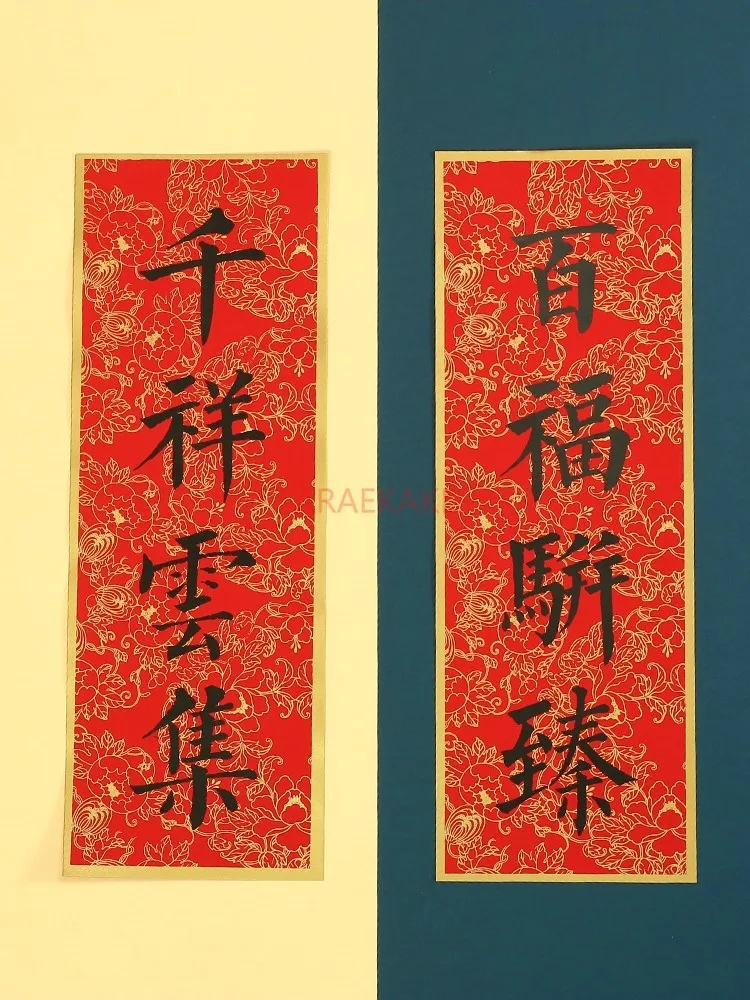 百福駢臻
千祥雲集
RAEKAKE